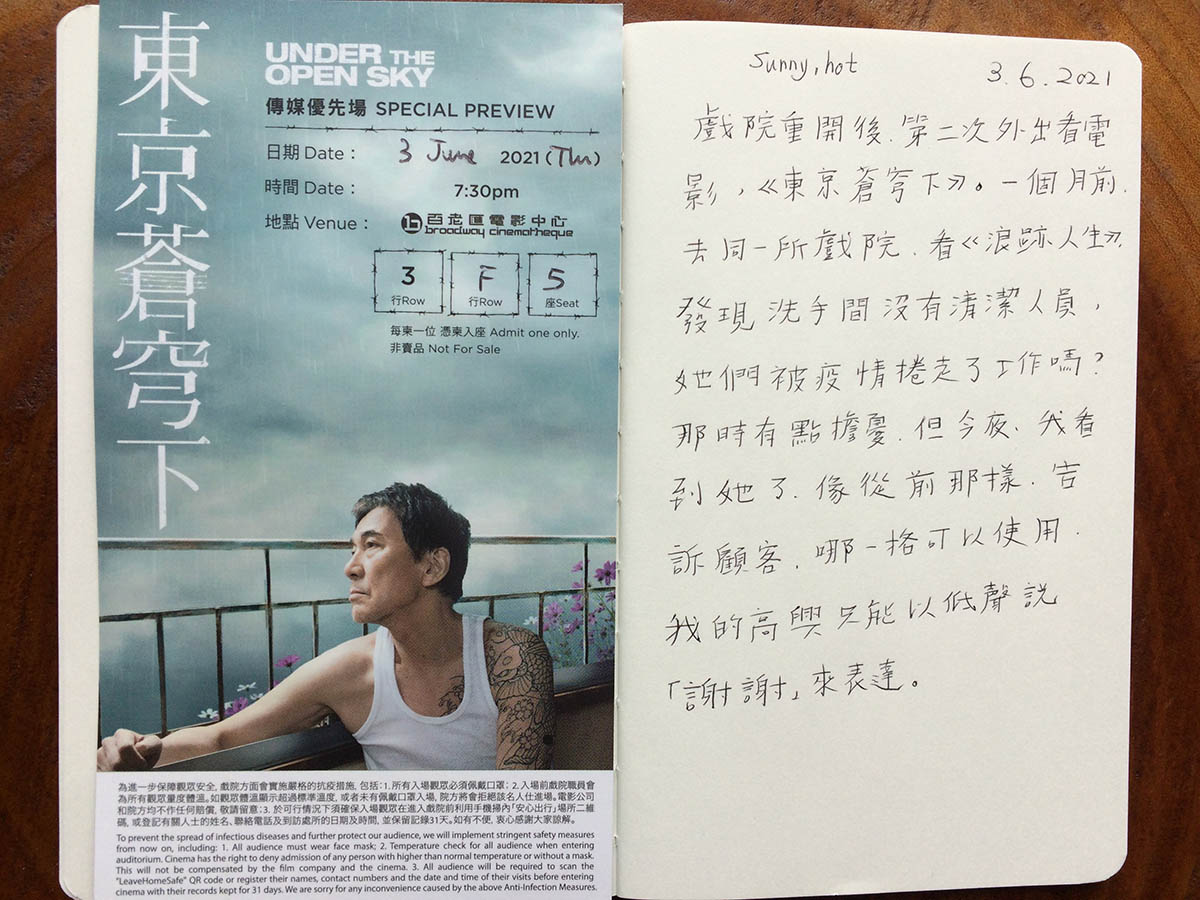 東京蒼穹下
UNDER THE
OPEN SKY
傳媒優先場 SPECIAL PREVIEW
日期 Date： 3 June 2021 (Thu)
時間 Date： 7:30pm
地點 Venue： 百老匯電影中心
broadway cinematheque
3 F 5
行Row 行Row 座Seat
每柬一位 憑柬入座 Admit one only.
非賣品 Not For Sale
為進一步保障觀眾安全, 戲院方面會實施嚴格的抗疫措施, 包括：1. 所有入場觀眾必須佩戴口罩; 2. 入場前戲院職員會
為所有觀眾量度體溫。如觀眾體溫顯示超過標準溫度, 或者未有佩戴口罩入場, 院方將會拒絕該名人仕進場。電影公司
和院方均不作任何賠償, 敬請留意; 3. 於可行情況下須確保入場觀眾在進入戲院前利用手機掃內「安心出行」場所二維
碼, 或登記有關人士的姓名、聯絡電話及到訪處所的日期及時間, 並保留記錄31天。如有不便, 衷心感謝大家諒解。
To prevent the spread of infectious diseases and further protect our audience, we will implement stringent safety measures
from now on, including: 1. All audience must wear face mask; 2. Temperature check for all audience when entering
auditorium. Cinema has the right to deny admission of any person with higher than normal temperature or without a mask.
This will not be compensated by the film company and the cinema. 3. All audience will be required to scan the
"LeaveHomeSafe" QR code or register their names, contact numbers and the date and time of their visits before entering
cinema with their records kept for 31 days. We are sorry for any inconvenience caused by the above Anti-Infection Measures.
Sunny, hot 3.6.2021
戲院重開後，第二次外出看電
影，《東京蒼穹下》。一個月前，
去同一所戲院，看《浪跡人生》，
發現洗手間沒有清潔人員，
她們被疫情捲走了工作嗎？
那時有點擔憂，但今夜，我看
到她了，像從前那樣，告
訴顧客，哪一格可以使用，
我的高興只能以低聲說
「謝謝」來表達。